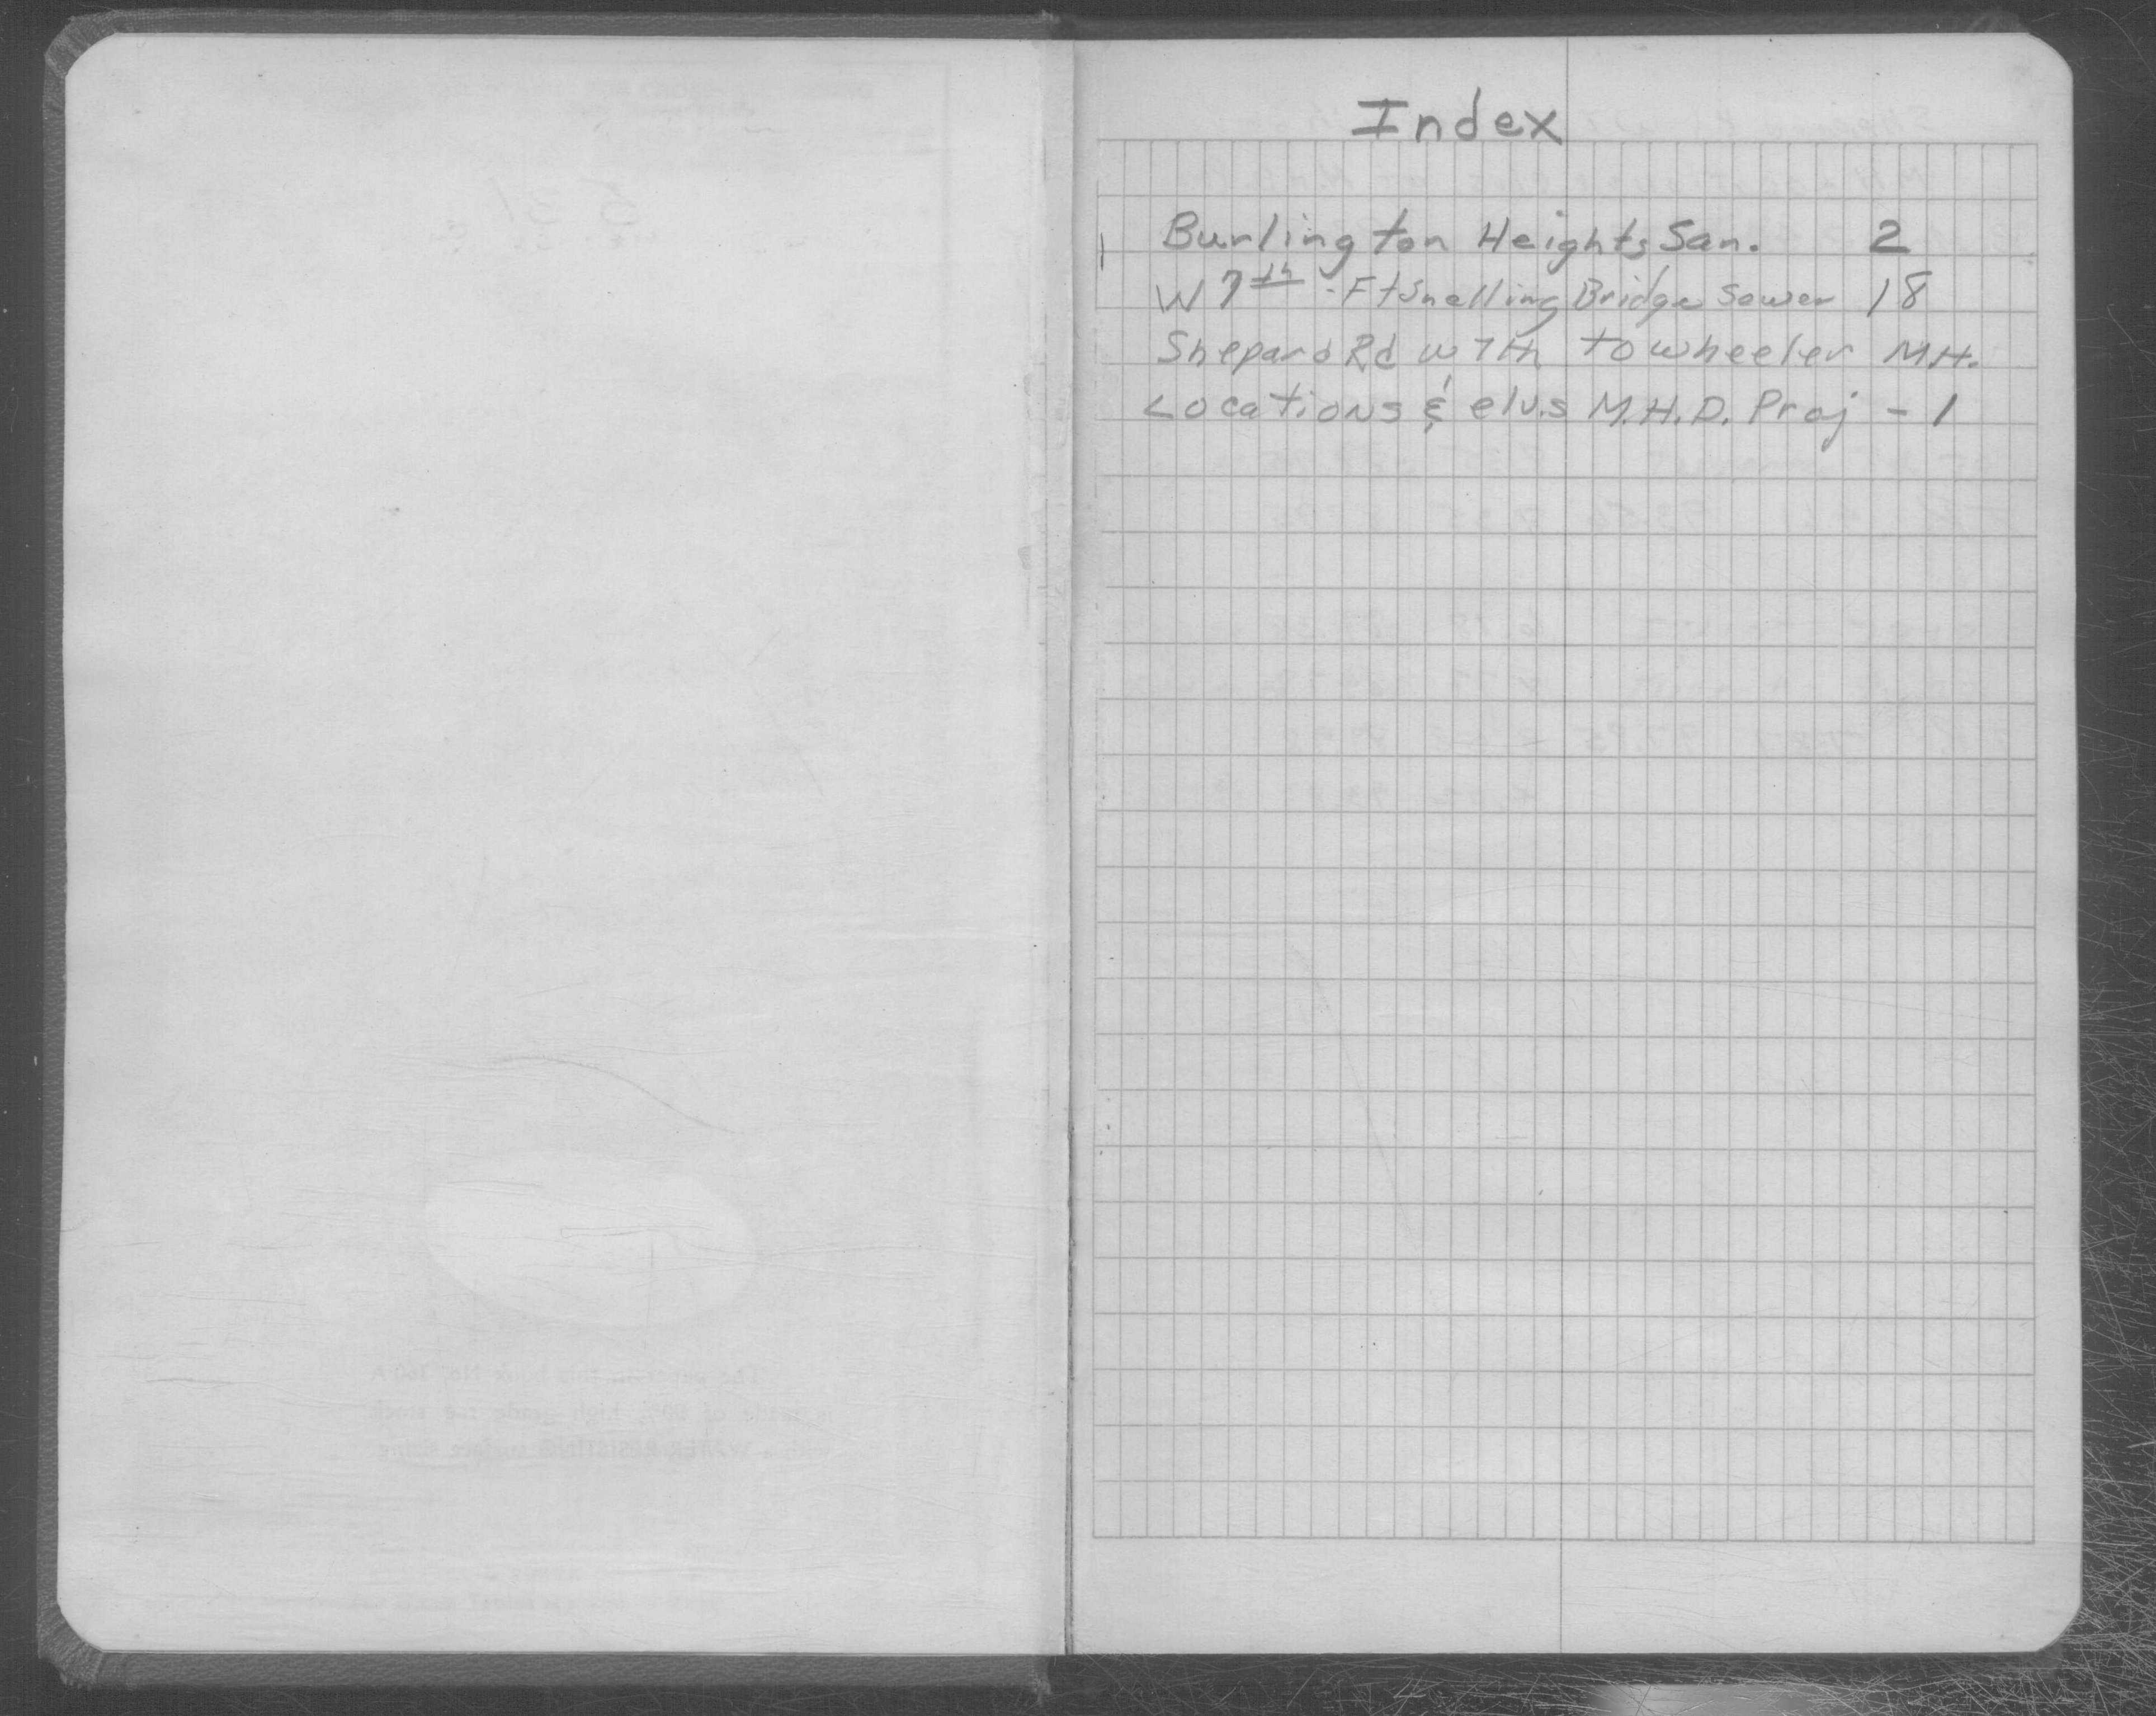 Index
Burlington Heights San. 2
W 7th - Ft Snelling Bridge Sewer 18
Shepard Rd W 7th to Wheeler M.H.
Locations & elv.s M.H.D. Proj - 1